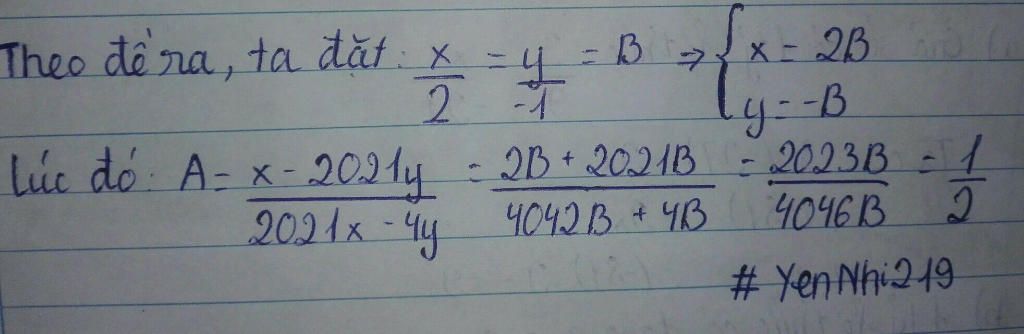 Theo đề ra, ta đặt: x/2 = y/-1 = B ⇒ { x = 2B
y = -B
Lúc đó: A = (x - 2021y)/(2021x - 4y) = (2B + 2021B)/(4042B + 4B) = 2023B/4046B = 1/2
# YenNhi219